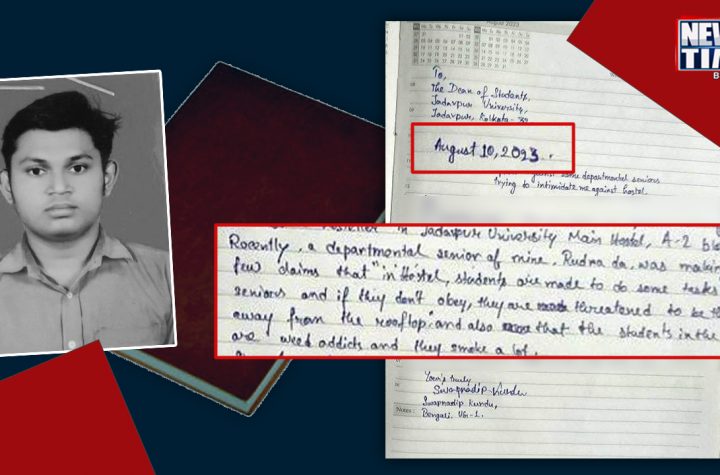 NEW
TIM
B
August 2023
To,
The Dean of Students,
Jadavpur University,
Jadavpur, Kolkata-32
August 10, 2023.
some departmental seniors
trying to intimidate me against hostel.
in Jadavpur University Main Hostel, A-2 Bl
Recently, a departmental senior of mine, Rudra da, was makin
few claims that "in Hostel, students are made to do some tasks
seniors and if they don't obey, they are threatened to be th
away from the rooftop" and also that the students in the
are weed addicts and they smoke a lot.
Yours truly
Swapnadip Kundu
Swapnadip Kundu,
Bengali, UG-1.
Notes